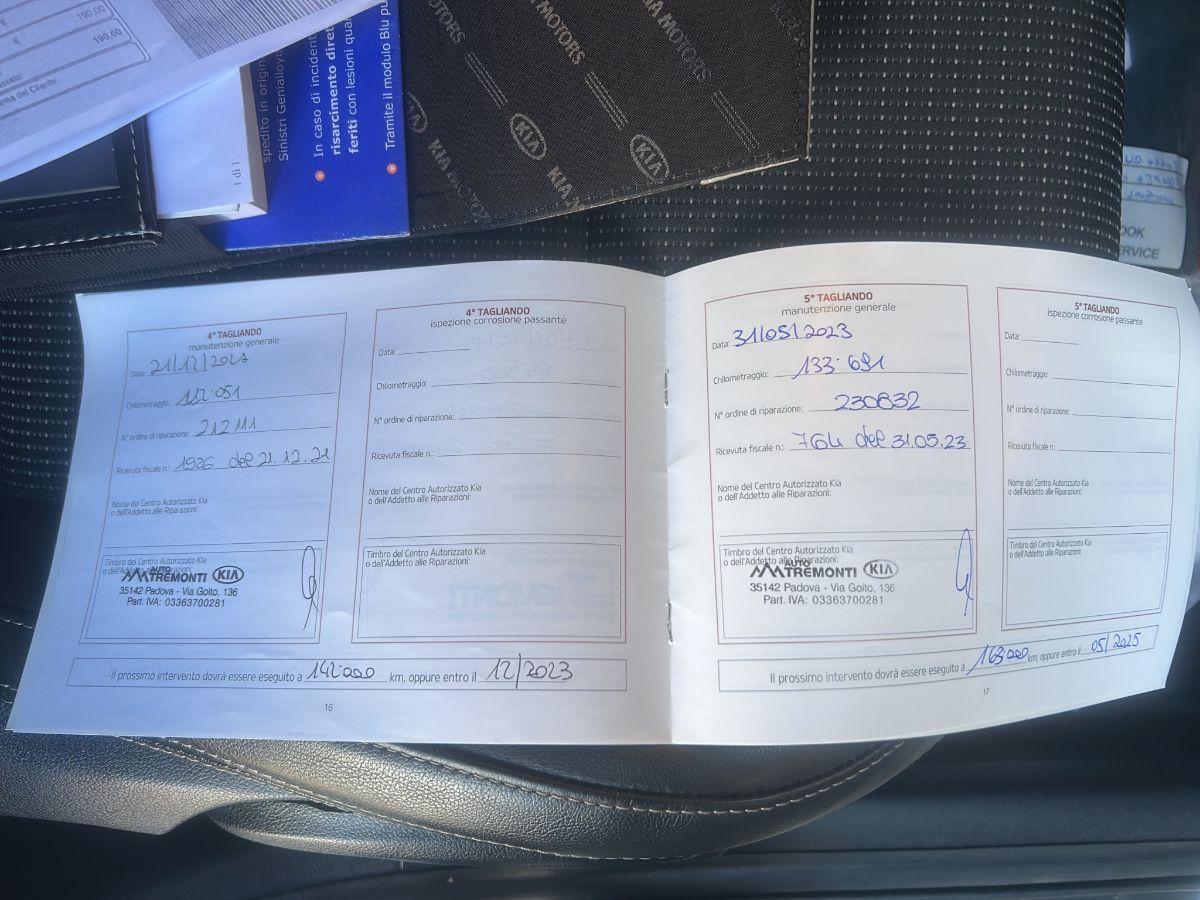 190,00
€
190,00
spedito in origin
Sinistri Genialloyd
In caso di incident
risarcimento diret
feriti con lesioni qua
Tramite il modulo Blu pu
1 di 1
KIA MOTORS
KIA
KIA
KIA
OOK
ERVICE
4° TAGLIANDO
manutenzione generale
Data: 21/12/2021
Chilometraggio: 112.051
N° ordine di riparazione: 212111
Ricevuta fiscale n.: 1926 del 21.12.21
Nome del Centro Autorizzato Kia
o dell'Addetto alle Riparazioni:
Timbro del Centro Autorizzato Kia
o dell'Addetto alle Riparazioni:
AUTO
TREMONTI KIA
35142 Padova - Via Goito, 136
Part. IVA: 03363700281
4° TAGLIANDO
ispezione corrosione passante
Data:
Chilometraggio:
N° ordine di riparazione:
Ricevuta fiscale n.:
Nome del Centro Autorizzato Kia
o dell'Addetto alle Riparazioni:
Timbro del Centro Autorizzato Kia
o dell'Addetto alle Riparazioni:
Il prossimo intervento dovrà essere eseguito a 142.000 km, oppure entro il 12/2023
16
5° TAGLIANDO
manutenzione generale
Data: 31/05/2023
Chilometraggio: 133.691
N° ordine di riparazione: 230832
Ricevuta fiscale n.: 764 del 31.05.23
Nome del Centro Autorizzato Kia
o dell'Addetto alle Riparazioni:
Timbro del Centro Autorizzato Kia
o dell'Addetto alle Riparazioni:
AUTO
TREMONTI KIA
35142 Padova - Via Goito, 136
Part. IVA: 03363700281
5° TAGLIANDO
ispezione corrosione passante
Data:
Chilometraggio:
N° ordine di riparazione:
Ricevuta fiscale n.:
Nome del Centro Autorizzato Kia
o dell'Addetto alle Riparazioni:
Timbro del Centro Autorizzato Kia
o dell'Addetto alle Riparazioni:
Il prossimo intervento dovrà essere eseguito a 163.000 km, oppure entro il 05/2025
17